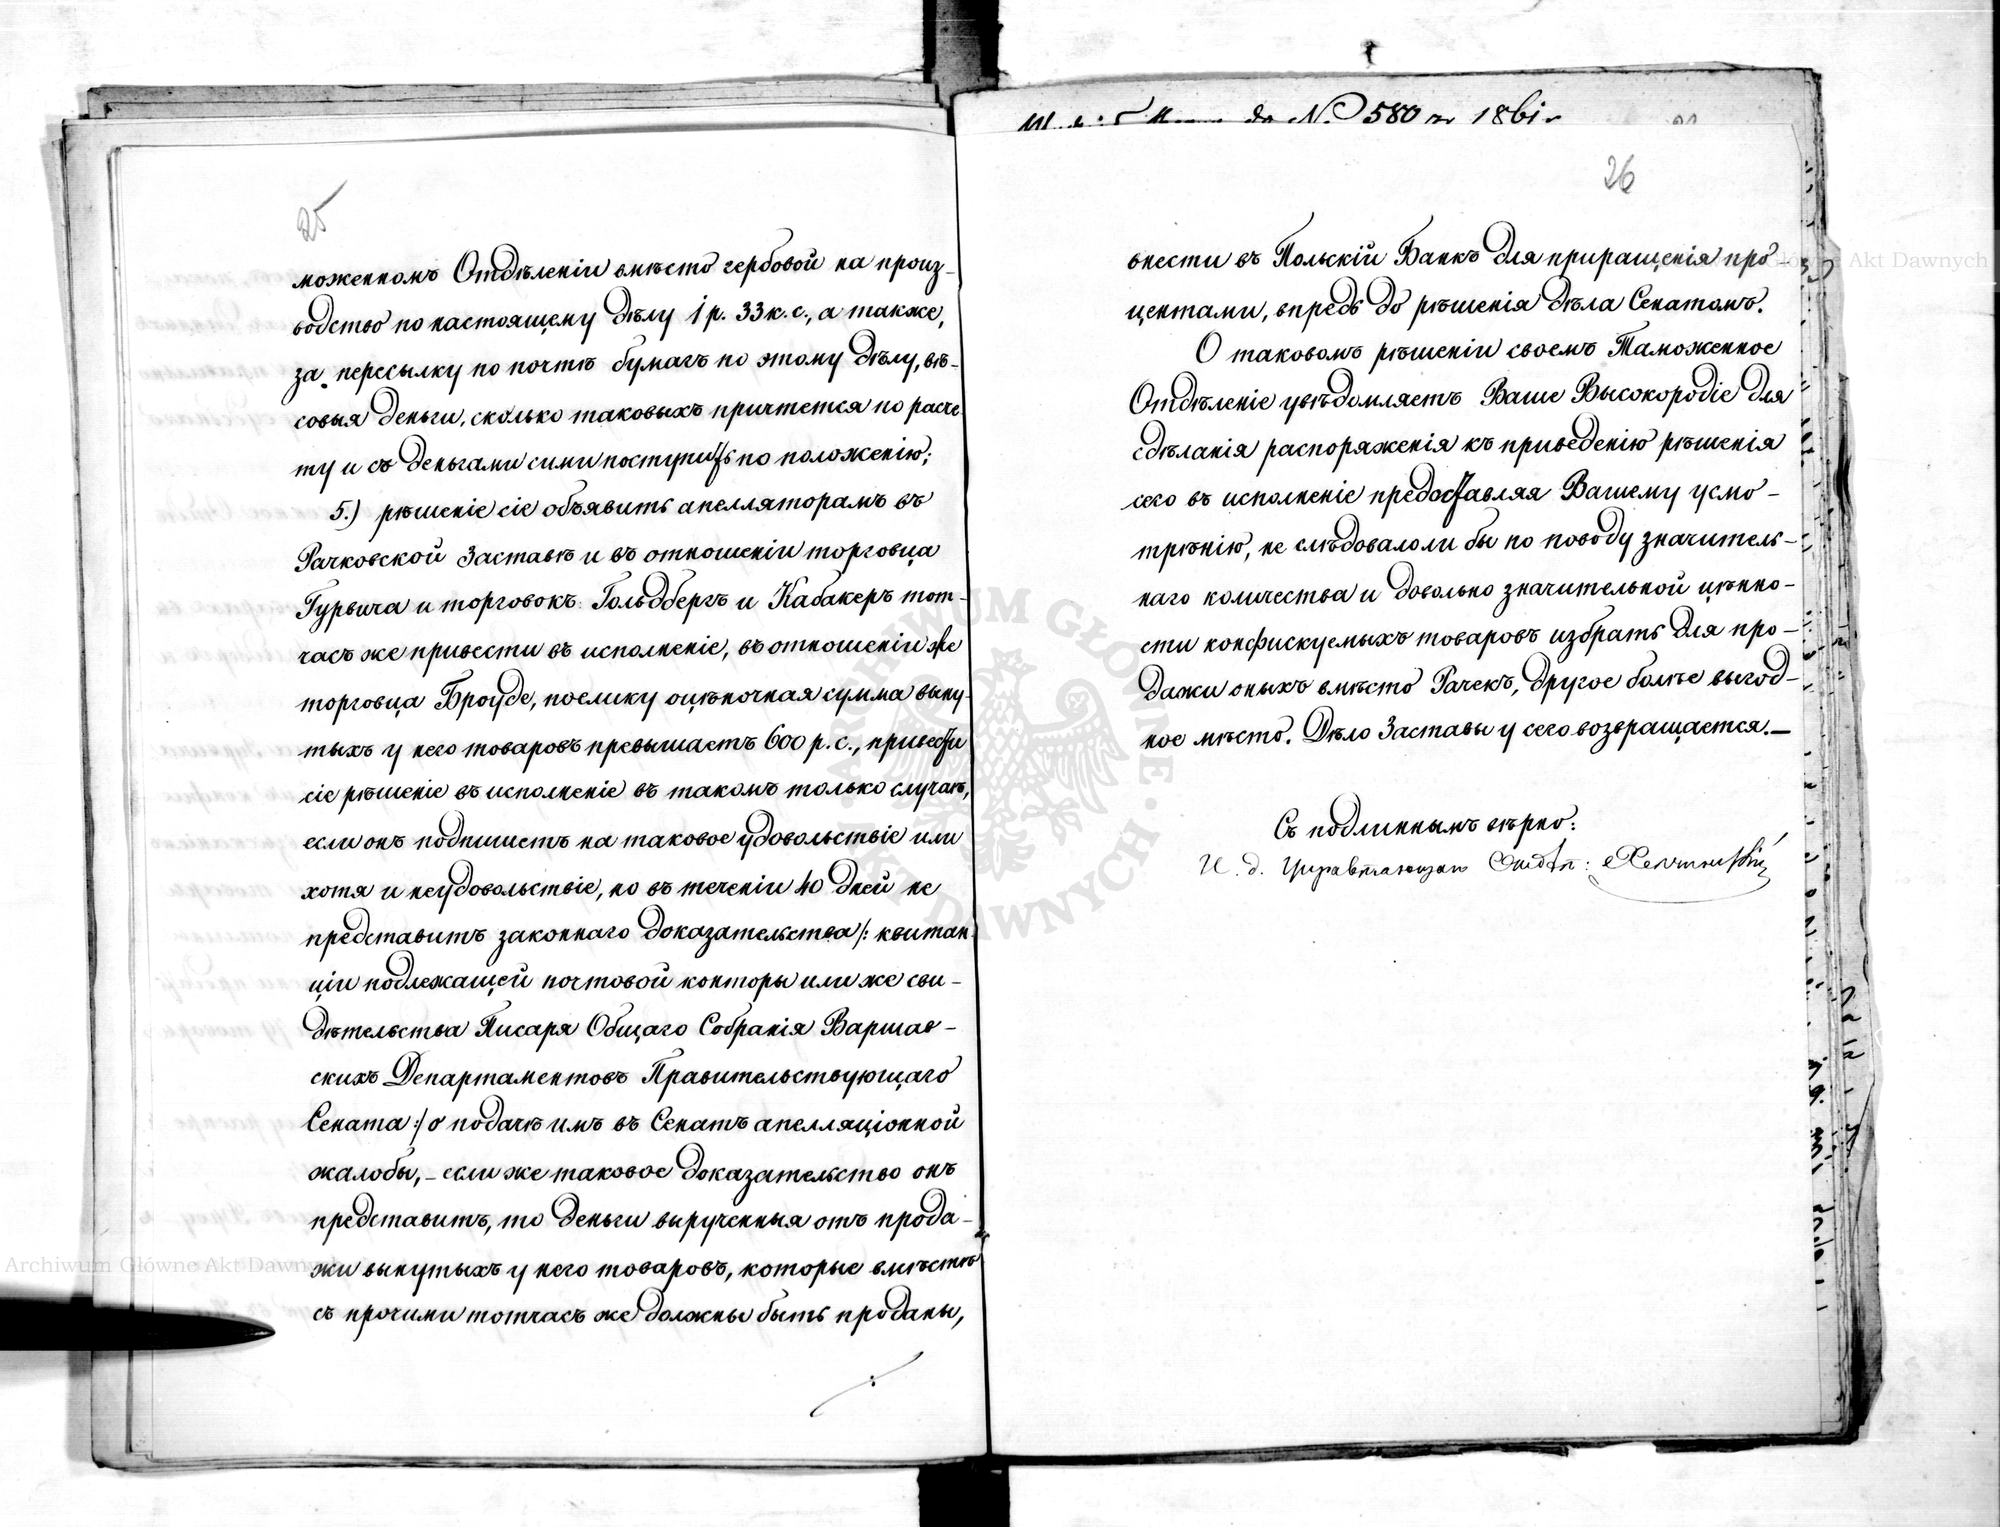 25
моженномъ Отдѣленіи вмѣсто гербовой на произ-
водство по настоящему дѣлу 1 р. 33 к. с., а также,
за пересылку по почтѣ бумагъ по этому дѣлу, вѣ-
совыя деньги, сколько таковыхъ причтется по расче
ту и съ деньгами сими поступить по положенію;
5.) рѣшеніе сіе объявить апелляторамъ въ
Рачковской Заставѣ и въ отношеніи торговца
Гурвича и торговокъ Гольдбергъ и Кабакеръ тот-
часъ же привести въ исполненіе, въ отношеніи же
торговца Броуде, поелику оцѣночная сумма выну-
тыхъ у него товаровъ превышаетъ 600 р. с., привести
сіе рѣшеніе въ исполненіе въ такомъ только случаѣ,
если онъ подпишетъ на таковое удовольствіе или
хотя и неудовольствіе, но въ теченіи 40 дней не
представитъ законнаго доказательства /: квитан
ціи подлежащей почтовой конторы или же сви-
дѣтельства Писаря Общаго Собранія Варшав-
скихъ Департаментовъ Правительствующаго
Сената :/ о подачѣ имъ въ Сенатъ апелляціонной
жалобы, - если же таковое доказательство онъ
представитъ, то деньги вырученныя отъ прода-
жи вынутыхъ у него товаровъ, которые вмѣстѣ
съ прочими тотчасъ же должны быть проданы,
до № 580 186
26
внести въ Польскій Банкъ для приращенія про-
центами, впредь до рѣшенія дѣла Сенатомъ.
О таковомъ рѣшеніи своемъ Таможенное
Отдѣленіе увѣдомляетъ Ваше Высокородіе для
сдѣланія распоряженія къ приведенію рѣшенія
сего въ исполненіе предоставляя Вашему усмо-
трѣнію, не слѣдовалоли бы по поводу значитель-
наго количества и довольно значительной цѣнно-
сти конфискуемыхъ товаровъ избрать для про-
дажи оныхъ вмѣсто Рачекъ, другое болѣе выгод-
ное мѣсто. Дѣло Заставы у сего возвращается.—
Съ подлиннымъ вѣрно:
И. д. Управляющаго Отдѣл:
ARCHIWUM GŁÓWNE AKT DAWNYCH
Archiwum Główne Akt Dawnych
Główne Akt Dawnych